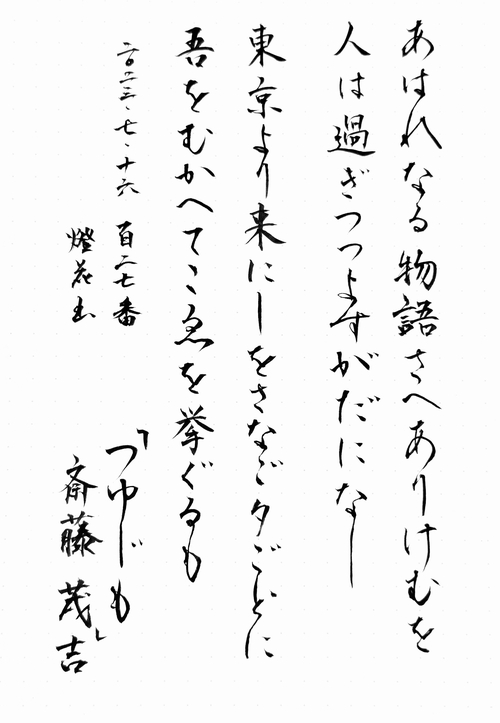 あはれなる物語さへありけむを
人は過ぎつつよすがだになし
東京より来にしをさなご夕ごとに
吾をむかへてこゑを挙ぐるも
二〇二三、七、十六
百二七番
燈花書
「つゆじも」
斎藤茂吉